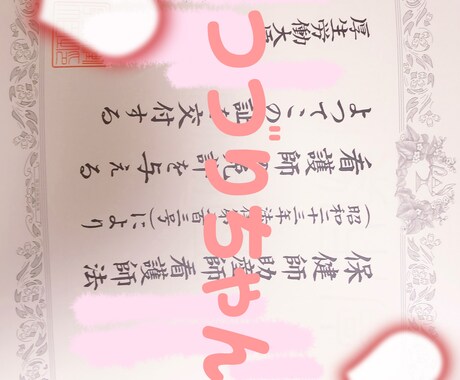 保健師助産師看護師法
(昭和二十三年法律第二百三号)により
看護師の免許を与える
よつてこの証を交付する
厚生労働大臣
つづりちゃん